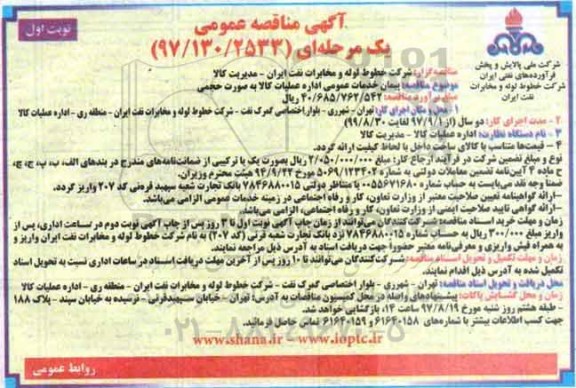 نوبت اول
آگهی مناقصه عمومی
یک مرحله‌ای (۹۷/۱۳۰/۲۵۳۳)
شرکت ملی پالایش و پخش
فرآورده‌های نفتی ایران
شرکت خطوط لوله و مخابرات
نفت ایران
مناقصه‌گزار: شرکت خطوط لوله و مخابرات نفت ایران - مدیریت کالا
موضوع مناقصه: پیمان خدمات عمومی اداره عملیات کالا به صورت حجمی
مبلغ برآورد مناقصه: ۴۰/۶۸۵/۷۶۲/۵۴۲ ریال
۱ - محل و مکان اجرای کار: تهران - شهرری - بلوار اختصاصی گمرک نفت - شرکت خطوط لوله و مخابرات نفت ایران - منطقه ری - اداره عملیات کالا
۲ - مدت اجرای کار: دو سال (از ۹۷/۹/۱ لغایت ۹۹/۸/۳۰)
۳ - نام دستگاه نظارت: اداره عملیات کالا - مدیریت کالا
۴ - قیمت‌ها متناسب با کالای ساخت داخل با لحاظ کیفیت ارائه گردد.
نوع و مبلغ تضمین شرکت در فرآیند ارجاع کار: مبلغ ۲/۰۵۰/۰۰۰/۰۰۰ ریال بصورت یک یا ترکیبی از ضمانت‌نامه‌های مندرج در بندهای الف، ب، پ، ج، چ،
ح ماده ۴ آیین‌نامه تضمین معاملات دولتی به شماره ۱۲۳۴۰۲/ت۵۰۶۹ مورخ ۹۴/۹/۲۲ هیئت محترم وزیران.
ضمناً وجه نقد می‌بایست به حساب شماره ۰۰۵۵۶۷۱۶۸۰ یا متناظر دولتی ۷۸۴۶۸۸۰۰۱۵ بانک تجارت شعبه سپهبد قرنی کد ۲۰۷ واریز گردد.
-ارائه گواهینامه تعیین صلاحیت معتبر از وزارت تعاون، کار و رفاه اجتماعی در زمینه خدمات عمومی الزامی می‌باشد.
-ارائه گواهی تایید صلاحیت ایمنی از وزارت تعاون، کار و رفاه اجتماعی، الزامی می‌باشد.
زمان و مهلت خرید اسناد مناقصه: شرکت‌کنندگان می‌توانند از زمان چاپ آگهی نوبت اول تا ۳ روز پس از چاپ آگهی نوبت دوم در ساعت اداری، پس از
واریز مبلغ ۳۰۰/۰۰۰ ریال به حساب شماره ۷۸۴۶۸۸۰۰۱۵ نزد بانک تجارت شعبه قرنی (کد ۲۰۷) به نام شرکت خطوط لوله و مخابرات نفت ایران واریز و
به همراه فیش واریزی و معرفی‌نامه معتبر حضوراً جهت دریافت اسناد به آدرس ذیل مراجعه نمایند.
زمان و مهلت تکمیل و تحویل اسناد مناقصه: شرکت‌کنندگان می‌توانند تا ۱۰ روز پس از آخرین مهلت دریافت اسناد در ساعات اداری نسبت به تحویل اسناد
تکمیل شده به آدرس ذیل اقدام نمایند.
محل دریافت و تحویل اسناد مناقصه: تهران - شهرری - بلوار اختصاصی گمرک نفت - شرکت خطوط لوله و مخابرات نفت ایران - منطقه ری - اداره عملیات کالا
زمان و محل گشایش پاکات: پیشنهادهای واصله در محل کمیسیون مناقصات به آدرس: تهران - خیابان سپهبدقرنی - نرسیده به خیابان سپند - پلاک ۱۸۸
- طبقه هشتم روز شنبه مورخ ۹۷/۸/۱۹ ساعت ۱۴، بازگشایی خواهد شد.
جهت کسب اطلاعات بیشتر با شماره‌های ۶۱۶۴۰۱۵۸ و ۶۱۶۴۰۱۵۹ تماس حاصل فرمائید.
www.shana.ir - www.ioptc.ir
روابط عمومی